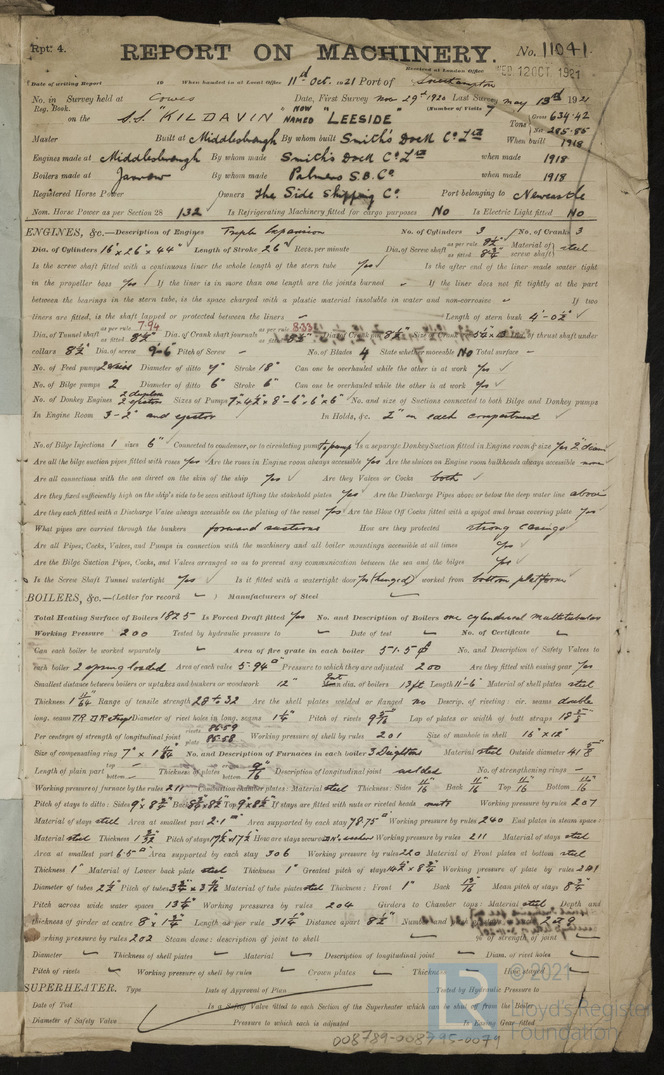 Rpt. 4.
REPORT ON MACHINERY.
No. 11041.
Received at London Office WED 12 OCT 1921
Date of writing Report 19 When handed in at Local Office 11th Oct. 1921 Port of Southampton
No. in Survey held at Cowes Date, First Survey Nov 29th 1920 Last Survey May 13th 1921
Reg. Book. (Number of Visits
on the S.S. "KILDAVIN" NOW NAMED "LEESIDE" Tons Gross 634.42 Net 285.85
Master Built at Middlesbrough By whom built Smith's Dock Co Ltd When built 1918
Engines made at Middlesbrough By whom made Smith's Dock Co Ltd when made 1918
Boilers made at Jarrow By whom made Palmers S.B. Co when made 1918
Registered Horse Power Owners The Side Shipping Co. Port belonging to Newcastle
Nom. Horse Power as per Section 28 132 Is Refrigerating Machinery fitted for cargo purposes No Is Electric Light fitted No
ENGINES, &c.—Description of Engines Triple Expansion No. of Cylinders 3 No. of Cranks 3
Dia. of Cylinders 16" x 26" x 44" Length of Stroke 26" Revs. per minute Dia. of Screw shaft as per rule as fitted 8 3/4" Material of screw shaft steel
Is the screw shaft fitted with a continuous liner the whole length of the stern tube Yes Is the after end of the liner made water tight
in the propeller boss Yes If the liner is in more than one length are the joints burned - If the liner does not fit tightly at the part
between the bearings in the stern tube, is the space charged with a plastic material insoluble in water and non-corrosive - If two
liners are fitted, is the shaft lapped or protected between the liners - Length of stern bush 4'-0½"
Dia. of Tunnel shaft as per rule 7.94 as fitted 8½" Dia. of Crank shaft journals as per rule 8.33 as fitted 8½" Dia. of Crank pin 8½" of thrust shaft under
collars 8½" Dia. of screw 9'-6" Pitch of Screw - No. of Blades 4 State whether moveable No Total surface -
No. of Feed pumps Diameter of ditto Stroke 18" Can one be overhauled while the other is at work Yes
No. of Bilge pumps 2 Diameter of ditto 6" Stroke 6" Can one be overhauled while the other is at work Yes
No. of Donkey Engines 2 duplex Sizes of Pumps No. and size of Suctions connected to both Bilge and Donkey pumps
In Engine Room 3-2" and ejector In Holds, &c. 2" in each compartment
No. of Bilge Injections 1 sizes 6" Connected to condenser, or to circulating pump Is a separate Donkey Suction fitted in Engine room & size Yes 2" diam
Are all the bilge suction pipes fitted with roses Yes Are the roses in Engine room always accessible Yes Are the sluices on Engine room bulkheads always accessible none
Are all connections with the sea direct on the skin of the ship Yes Are they Valves or Cocks both
Are they fixed sufficiently high on the ship's side to be seen without lifting the stokehold plates Yes Are the Discharge Pipes above or below the deep water line above
Are they each fitted with a Discharge Valve always accessible on the plating of the vessel Yes Are the Blow Off Cocks fitted with a spigot and brass covering plate Yes
What pipes are carried through the bunkers forward suctions How are they protected strong casings
Are all Pipes, Cocks, Valves, and Pumps in connection with the machinery and all boiler mountings accessible at all times Yes
Are the Bilge Suction Pipes, Cocks, and Valves arranged so as to prevent any communication between the sea and the bilges Yes
Is the Screw Shaft Tunnel watertight Yes Is it fitted with a watertight door Yes (hinged) worked from bottom platform
BOILERS, &c.—(Letter for record ) Manufacturers of Steel
Total Heating Surface of Boilers 1825 Is Forced Draft fitted Yes No. and Description of Boilers one cylindrical multitubular
Working Pressure 200 Tested by hydraulic pressure to Date of test No. of Certificate
Can each boiler be worked separately Area of fire grate in each boiler 51.5 No. and Description of Safety Valves to
each boiler 2 spring loaded Area of each valve 5.94 Pressure to which they are adjusted 200 Are they fitted with easing gear Yes
Smallest distance between boilers or uptakes and bunkers or woodwork 12" dia. of boilers 13 ft Length 11'-6" Material of shell plates steel
Thickness 1 1/64" Range of tensile strength 28 to 32 Are the shell plates welded or flanged no Descrip. of riveting: cir. seams double
long. seams T.R. D.R. straps Diameter of rivet holes in long. seams 1¼" Pitch of rivets Lap of plates or width of butt straps
Per centages of strength of longitudinal joint rivets 85.59 plate 85.58 Working pressure of shell by rules 201 Size of manhole in shell 16" x 12"
Size of compensating ring No. and Description of Furnaces in each boiler 3 Deightons Material steel Outside diameter
Length of plain part top bottom Thickness of plates crown bottom 9/16" Description of longitudinal joint welded No. of strengthening rings -
Working pressure of furnace by the rules 211 Combustion chamber plates: Material steel Thickness: Sides 11/16" Back 11/16" Top 11/16" Bottom 11/16"
Pitch of stays to ditto: Sides Back Top If stays are fitted with nuts or riveted heads nuts Working pressure by rules 207
Material of stays steel Area at smallest part 2.1 Area supported by each stay 78.75 Working pressure by rules 240 End plates in steam space:
Material steel Thickness 1 3/32" Pitch of stays 17½ x 17½ How are stays secured Working pressure by rules 211 Material of stays steel
Area at smallest part 6.5 Area supported by each stay 306 Working pressure by rules 220 Material of Front plates at bottom steel
Thickness 1" Material of Lower back plate steel Thickness 1" Greatest pitch of stays Working pressure of plate by rules 201
Diameter of tubes 2½" Pitch of tubes Material of tube plates steel Thickness: Front 1" Back 13/16" Mean pitch of stays
Pitch across wide water spaces 13½" Working pressures by rules 204 Girders to Chamber tops: Material steel Depth and
thickness of girder at centre 8" x 1¾" Length as per rule Distance apart 8½" Number and
working pressure by rules 202 Steam dome: description of joint to shell % of strength of joint
Diameter Thickness of shell plates Material Description of longitudinal joint Diam. of rivet holes
Pitch of rivets Working pressure of shell by rules Crown plates Thickness How stayed
SUPERHEATER. Type Date of Approval of Plan Tested by Hydraulic Pressure to
Date of Test Is a Safety Valve fitted to each Section of the Superheater which can be shut off from the Boiler
Diameter of Safety Valve Pressure to which each is adjusted Is Easing Gear fitted
008789-008795-0079
© 2021
Lloyd's Register
Foundation